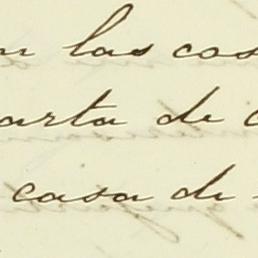 n las cos
arta de c
casa de